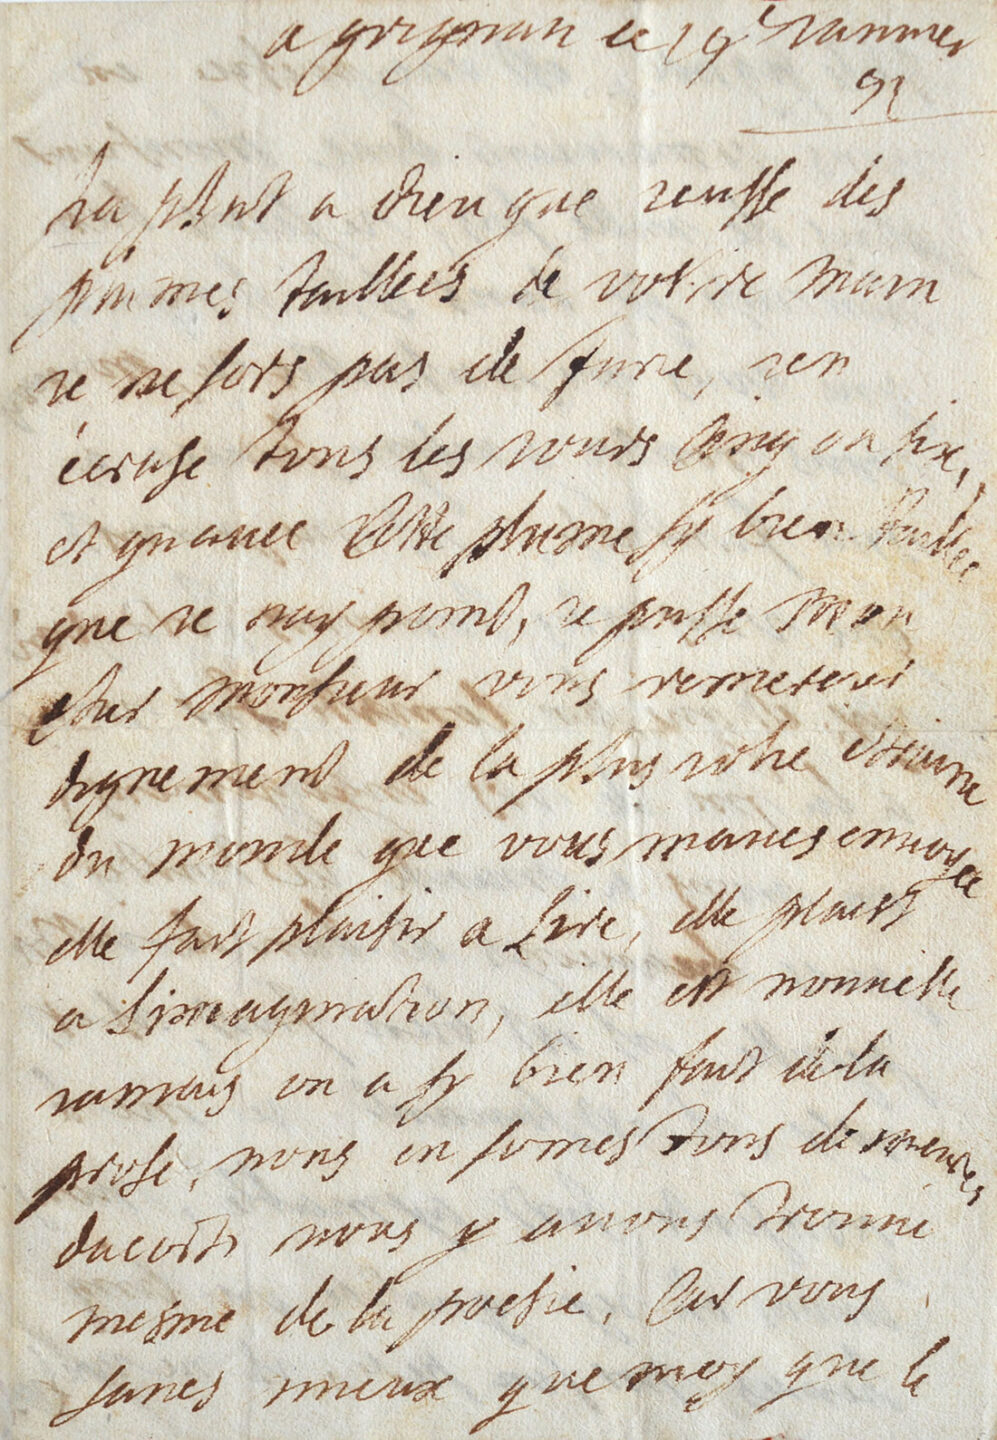 a grignan ce 19e ianuier
91
ha plut a dieu que ieusse des
plumes taillees de vostre main
ie ne sors pas de furie, ien
écrase tous les iours cinq ou six,
et quauec cette plume sy bien taillee
que ie nay point, ie pusse mon
cher monsieur vous remercier
dignement de la plus iolie étreine
du monde que vous maues enuoyee
elle fait plaisir a lire, elle plaist
a limagination, elle est nouuelle
iamais on a sy bien fait de la
prose, nous en somes tous demeurés
dacort, nous y auons trouué
mesme de la poesie, car vous
saues mieux que moy que le